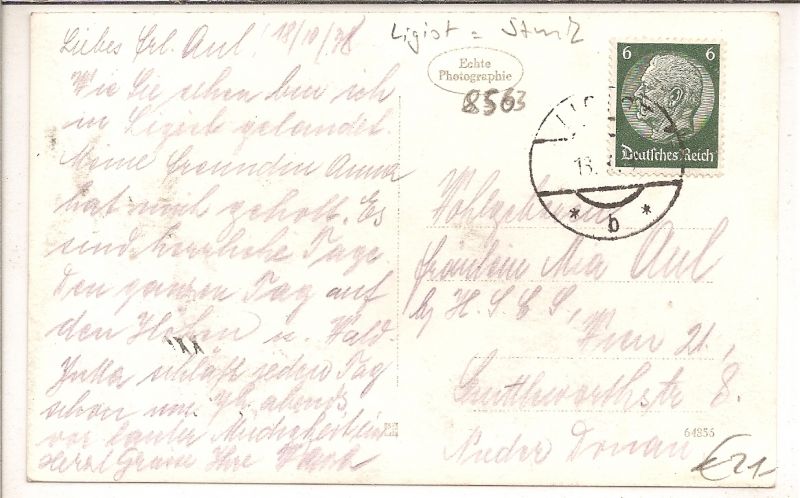 Liebes Frl. Aul! 18/10/38
Wie Sie sehen bin ich
in Ligist gelandet.
Meine Freundin Anna
hat mich geholt. Es
sind herrliche Tage
den ganzen Tag auf
den Höhen u. Wald.
schläft jeden Tag
schon um 7h abends
vor lauter
Herzl Grüße Ihre
Ligist =
Echte
Photographie
8563
6 6
Deutsches Reich
* b *
Wohlgeboren
Fräulein Mia Aul
H. S. C. S,
Wien 21,
8.
Nieder Donau
64856
€21